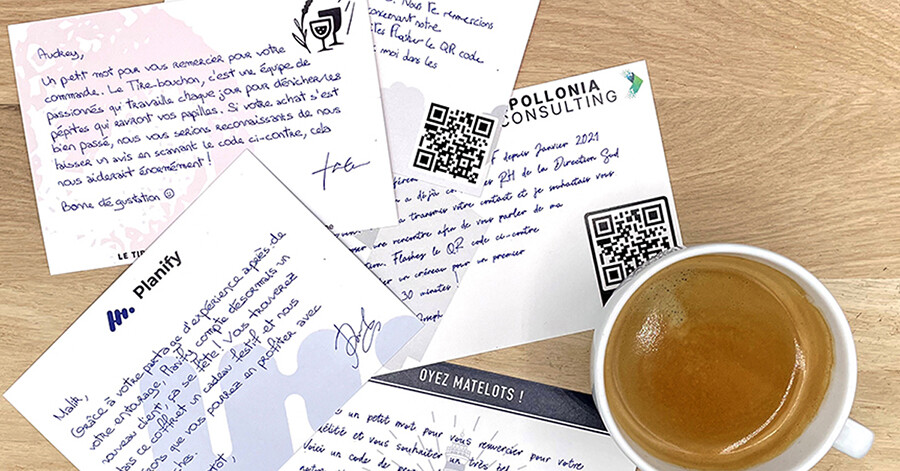 Audrey,
Un petit mot pour vous remercier pour votre
commande. Le Tire-bouchon, c'est une équipe de
passionnés qui travaille chaque jour pour dénicher les
pépites qui raviront vos papilles. Si votre achat s'est
bien passé, nous vous serions reconnaissants de nous
laisser un avis en scannant le code ci-contre, cela
nous aiderait énormément !
Bonne dégustation
LE TIR
Nous te remercions
concernant notre
flasher le QR code
moi dans les
POLLONIA
CONSULTING
F depuis Janvier 2021
a déjà RH de la Direction Sud
a transmis votre contact et je souhaitais vous
une rencontre afin de vous parler de ma
Flashez le QR code ci-contre
un créneau pour un premier
30 minutes !
Joseph
Planify
Malik,
Grâce à votre partage d'expérience auprès de
votre entourage, Planify compte désormais un
nouveau client, ça se fête ! Vous trouverez
un cadeau festif et nous
que vous pourrez en profiter avec
OYEZ MATELOTS !
un petit mot pour vous remercier pour votre
et vous souhaiter un très bel
un code de